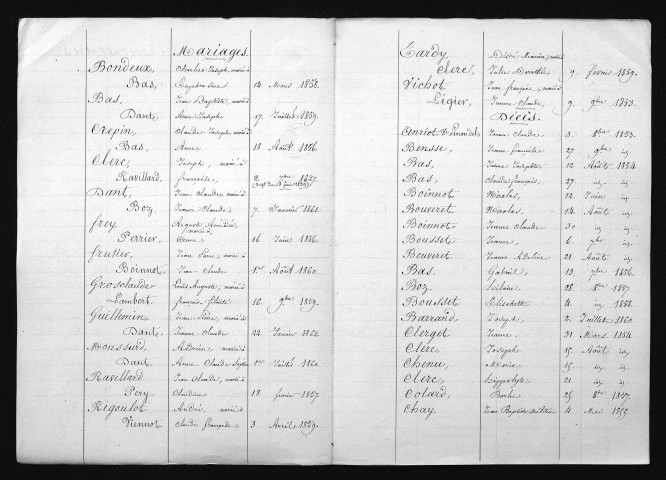 Mariages.
Bondeux, Charles Joseph, marié à
Bas, 14 Mars 1858.
Bas, Jean Baptiste, marié à
Dant, Anne Joseph 17 Juillet 1859.
Crepin, Claude Joseph marié à
Bas, Anne 18 Août 1856.
Clerc, Joseph, marié à
Ravillard, Françoise, 2
Dant, Jean Claude marié à
Boz, Jeanne Claude 7 Janvier 1861.
frey Auguste Amédée,
marié à
Perrier, 16 Juin 1856.
frutier, Jean Pierre, marié à
Boinnot, Jean-Claude 1er Août 1860.
Grosclaudes Louis Auguste, marié à
Lambert, 16 9bre 1859.
Guillemin, Jean Pierre, marié à
Dant, Jeanne Claude 22 Janvier 1862.
Moussard, Adrien, marié à
Dant, Anne Claude 1er 1860.
Ravillard Jean Claude, marié à
Pery, Claudine 18 fevrier 1857.
Rigoulot André, marié à
Viennot, Claude Françoise 3 Avril 1829.
Tardy, Désiré marié à
Clerc, Julie Dorothée 9 fevrier 1859.
Vichot Jean françois, marié à
Légier, Jeanne Claude, 9 9bre 1853.
Décès.
Anriot Jeanne Claude 3 8bre 1853.
Bensse, Jeanne françoise 27 9bre id
Bas, Jeanne Josephte 12 Août 1854
Bas, Claude françois, 27 id id
Boinnot Nicolas, 12 Juin id
Bouveret Nicolas, 14 Août id
Boinnot, Jeanne Claude 30 id id
Bousset Jeanne, 6 7bre id
Bouveret, Jeanne Adeline 21 Août id
Bas, Gabriel, 13 7bre 1856.
Boz, Hilaire, 28 8bre 1857.
Bousset Elisabeth 4 id 1858.
Barrand, Joseph, 2 Juillet 1860.
Clerget, Jeanne, 31 Mars 1854.
Clerc, Joseph 15 Août id
Chenu, Marie 15 id id
Clerc, hippolyte 21 id id
Colard, Barbe 25 8bre 1857.
Chay, Jean Baptiste 4 Mai